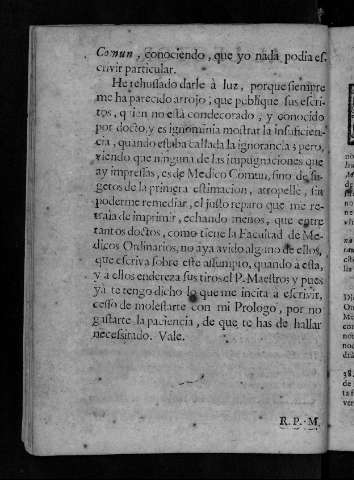 Comun, conociendo, que yo nada podia es-
crivir particular.
He rehussado darle à luz, porque siempre
me ha parecido arrojo; que publique sus escri-
tos, quien no està condecorado, y conocido
por docto, y es ignominia mostrar la insuficien-
cia, quando estaba callada la ignorancia; pero,
viendo que ninguna de las impugnaciones que
ay impressas, es de Medico Comun, sino de su-
getos de la primera estimacion, atropellè, sin
poderme remediar, el justo reparo que me re-
traìa de imprimir, echando menos, que entre
tantos doctos, como tiene la Facultad de Me-
dicos Ordinarios, no aya avido alguno de ellos,
que escriva sobre este assumpto, quando à esta,
y à ellos endereza sus tiros el P. Maestro; y pues
yà te tengo dicho lo que me incita à escrivir,
cesso de molestarte con mi Prologo, por no
gastarte la paciencia, de que te has de hallar
necessitado. Vale.
R. P. M.